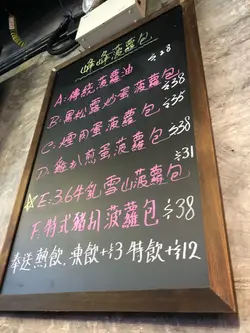 峰峰菠蘿包
A:傳統菠蘿油 $28
B:黑松露炒蛋菠蘿包 $38
C:煙肉蛋菠蘿包 $35
D:雞扒煎蛋菠蘿包 $38
E:3.6牛乳雪山菠蘿包 $31
F:特式豬扒菠蘿包 $38
奉送熱飲,凍飲+$3 特飲+$12